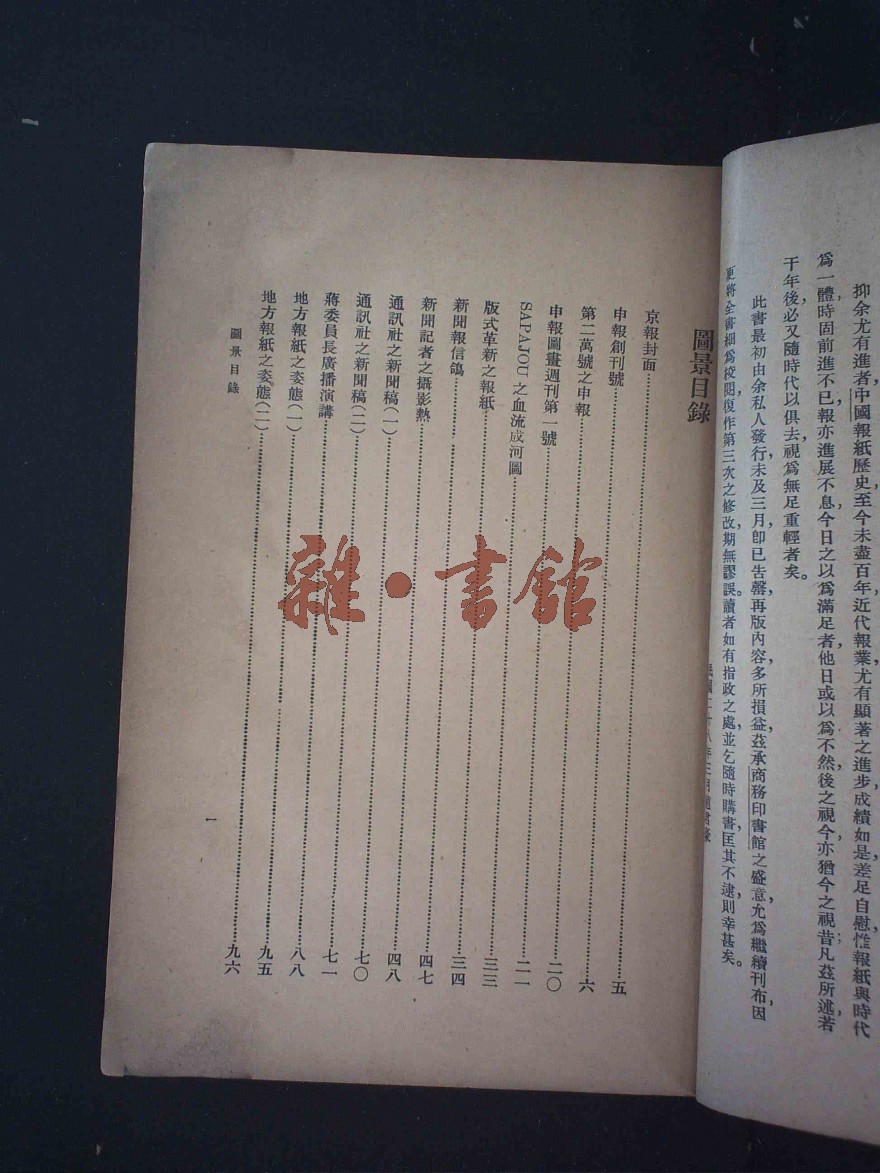 抑余尤有進者,中國報紙歷史至今未盡百年,近代報業尤有顯著之進步,成績如是,差足自慰惟報紙與時代
爲一體,時固前進不已,報亦進展不息,今日之以爲滿足者,他日或以爲不然,後之視今,亦猶今之視昔;凡茲所述,若
干年後,必又隨時代以俱去,視爲無足重輕者矣。
此書最初由余私人發行,未及三月,卽已告罄,再版內容,多所損益,茲承商務印書館之盛意,允爲繼續刊布,因
更將全書細爲校閱,復作第三次之修改,期無謬誤。讀者如有指政之處,並乞隨時購書,匡其不逮,則幸甚矣。
圖景目錄
京報封面……五
申報創刊號……六
第二萬號之申報……二〇
申報圖畫週刊第一號……二一
SAPAJOU之血流成河圖……二三
版式革新之報紙……三四
新聞報信鴿……四七
新聞記者之攝影熱……四八
通訊社之新聞稿(一)……七〇
通訊社之新聞稿(二)……七一
蔣委員長廣播演講……八八
地方報紙之姿態(一)……九五
地方報紙之姿態(二)……九六
圖景目錄
一
雜·書館